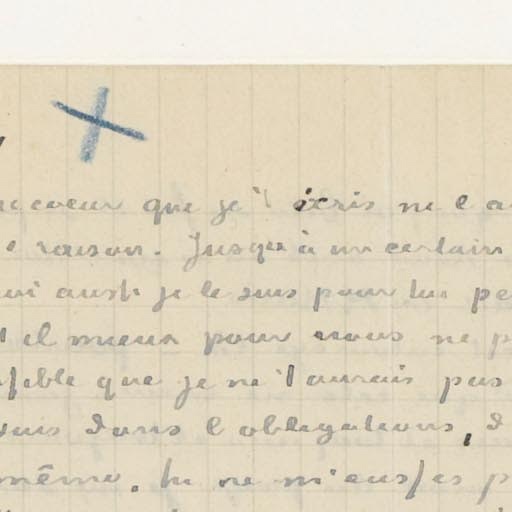 coeur que je t'écris ne
raison. Jusqu'a un certain
aussi je le suis pour toi
il mieux pour nous ne
que je ne t'aurais pas
suis dans l obligations,
même. tu ne m'eusses